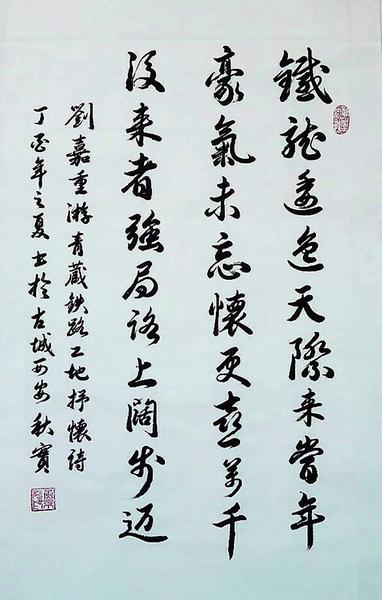 鐵龍逶迤天際来當年
豪氣未忘懷更喜萬千
後来者強局路上闊步迈
劉嘉重游青藏鉄路工地抒懷詩
丁酉年之夏书於古城西安秋寶